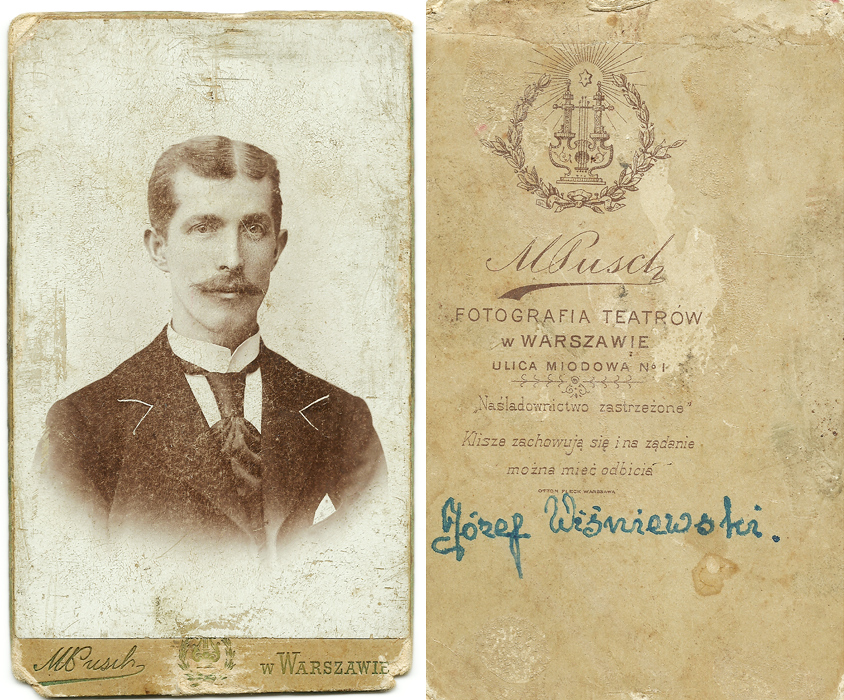 M Pusch
w WARSZAWIE
M Pusch
FOTOGRAFIA TEATRÓW
w WARSZAWIE
ULICA MIODOWA No 1
„Naśladownictwo zastrzeżone"
Klisze zachowują się i na żądanie
można mieć odbicia
OTTON FLECK WARSZAWA
Józef Wiśniewski.